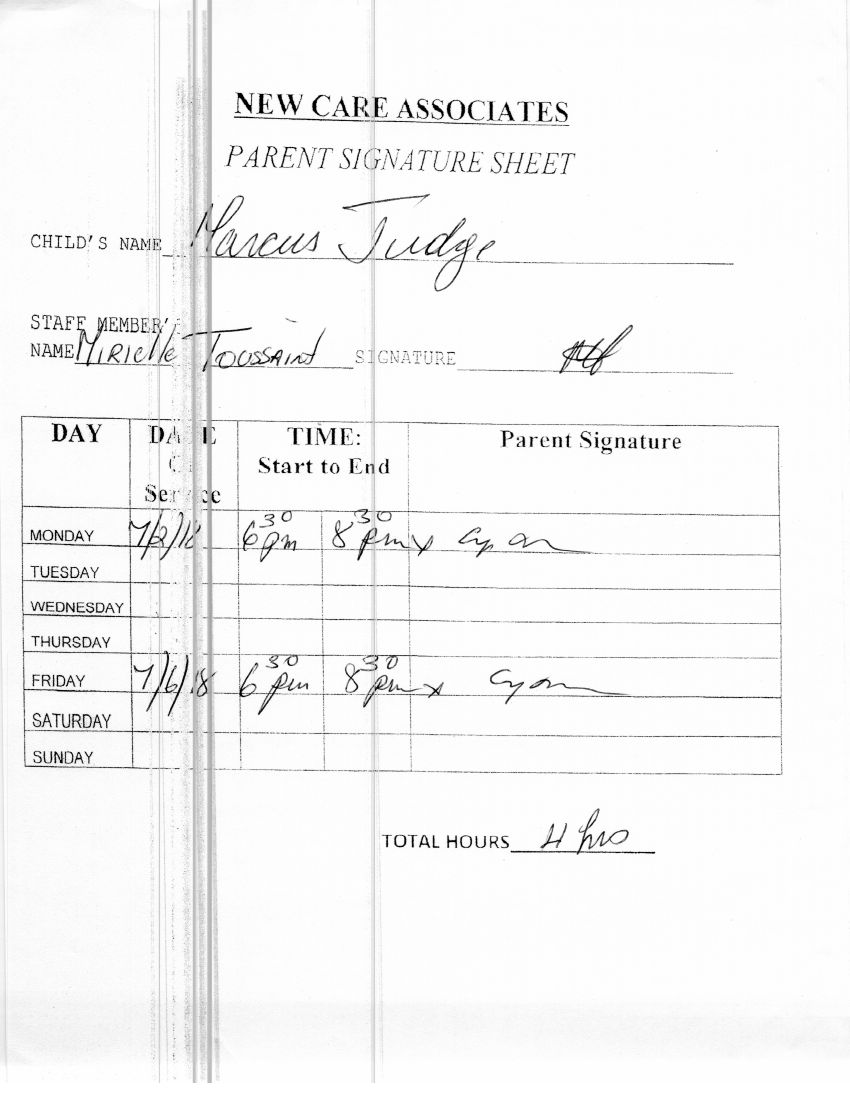 NEW CARE ASSOCIATES
PARENT SIGNATURE SHEET
CHILD'S NAME Marcus Judge
STAFF MEMBER'S
NAME Mirielle Toussaint SIGNATURE
DAY DATE TIME: Parent Signature
Of Start to End
Service
MONDAY 7/2/18 6 30 pm 8 30 pm x
TUESDAY
WEDNESDAY
THURSDAY
FRIDAY 7/6/18 6 30 pm 8 30 pm x
SATURDAY
SUNDAY
TOTAL HOURS 4 hrs